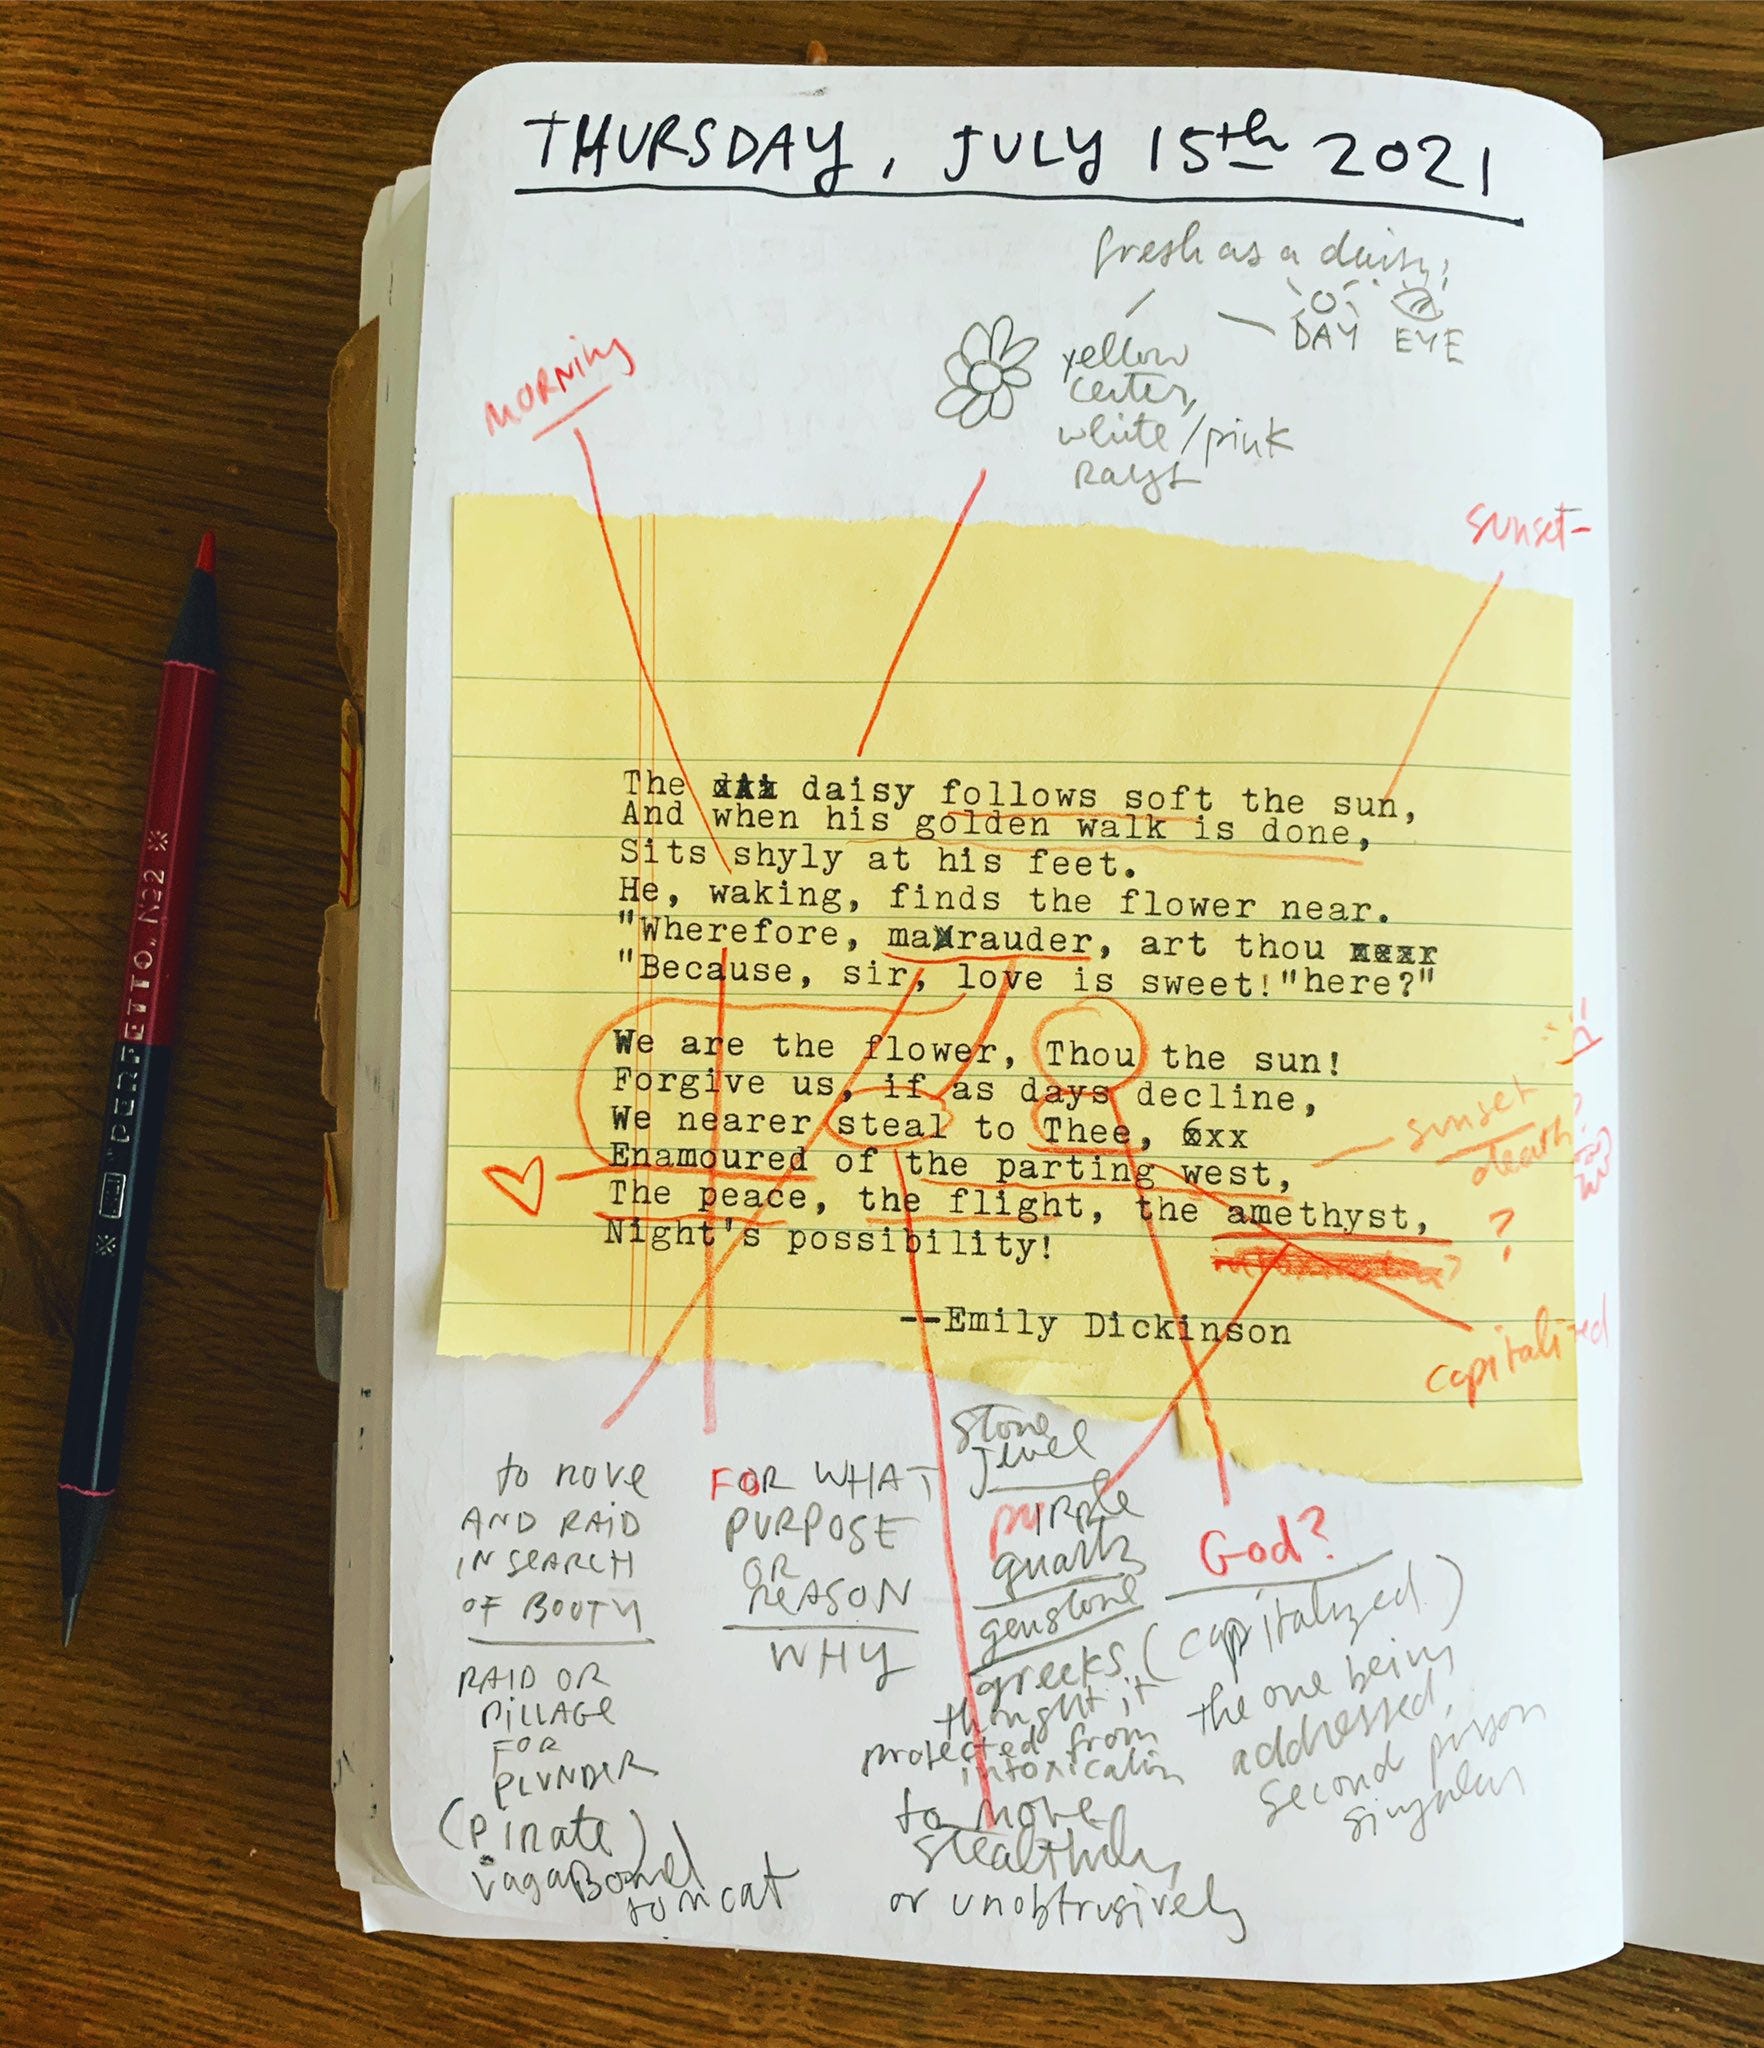 THURSDAY, JULY 15th 2021
fresh as a daisy,
DAY EYE
yellow
center,
white/pink
rays
MORNING
sunset-
The daisy follows soft the sun,
And when his golden walk is done,
Sits shyly at his feet.
He, waking, finds the flower near.
"Wherefore, marauder, art thou
"Because, sir, love is sweet!"here?"
We are the flower, Thou the sun!
Forgive us, if as days decline,
We nearer steal to Thee, xx
Enamoured of the parting west,
The peace, the flight, the amethyst,
Night's possibility!
--Emily Dickinson
sunset
death?
?
capitalized
to rove
AND RAID
IN SEARCH
OF BOOTY
RAID OR
PILLAGE
FOR
PLUNDER
(pirate)
vagaBond
tomcat
FOR WHAT
PURPOSE
OR
REASON
WHY
stone
jewel
purple
quartz
gemstone
greeks
thought it
protected from
intoxication
to move
stealthily,
or unobtrusively
God?
(capitalized)
the one being
addressed,
second person
singular
"PERFETTO" No2